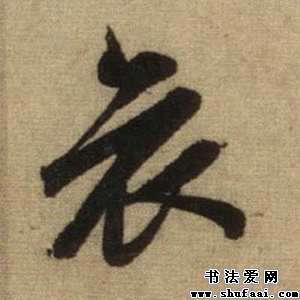 衣
书法爱网
www.shufaai.com